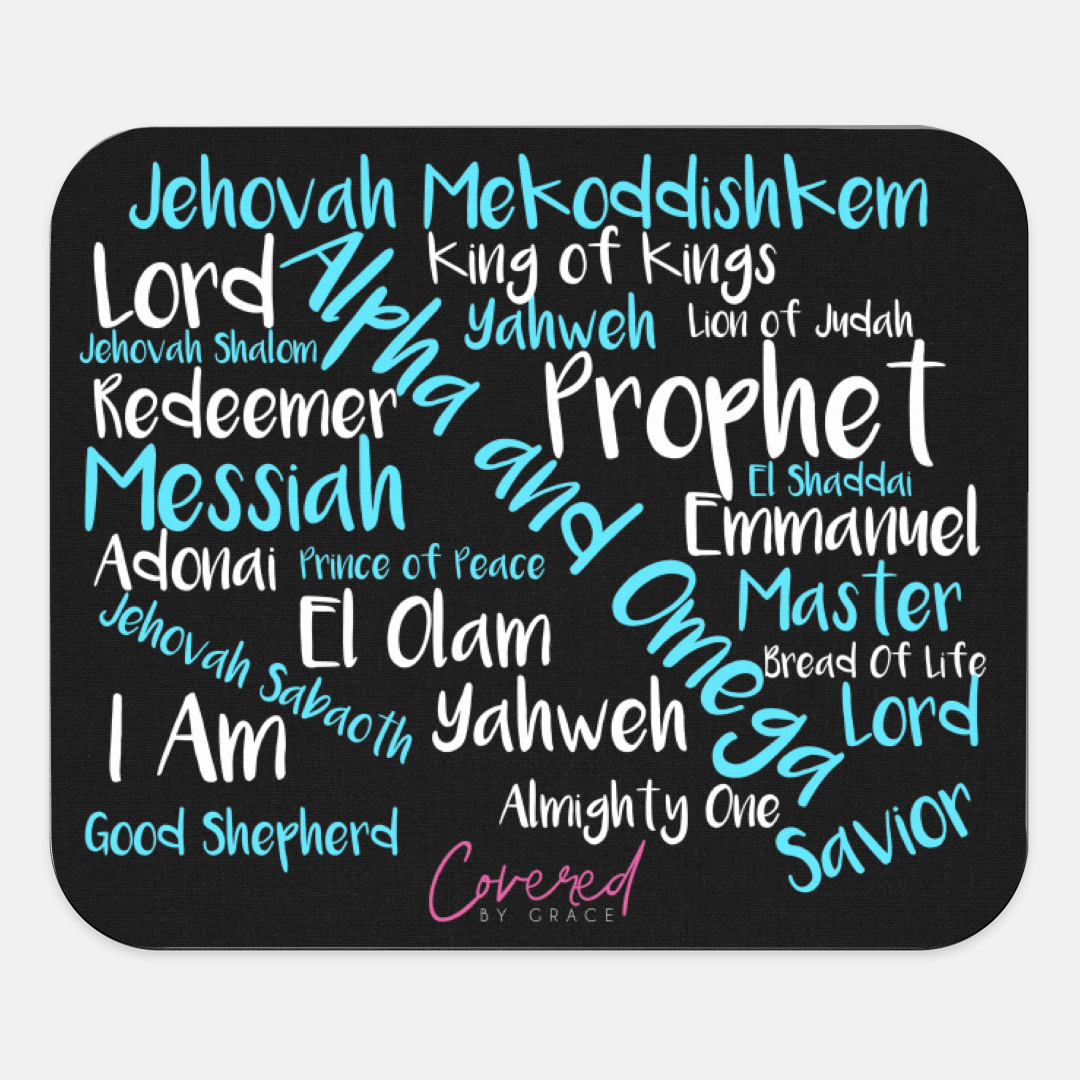 Jehovah Mekoddishkem
Lord
Alpha and Omega
King of Kings
Yahweh
Lion of Judah
Jehovah Shalom
Redeemer
Prophet
Messiah
El Shaddai
Emmanuel
Adonai
Prince of Peace
Master
Jehovah Sabaoth
El Olam
Bread Of Life
I Am
Yahweh
Lord
Almighty One
Savior
Good Shepherd
Covered
BY GRACE